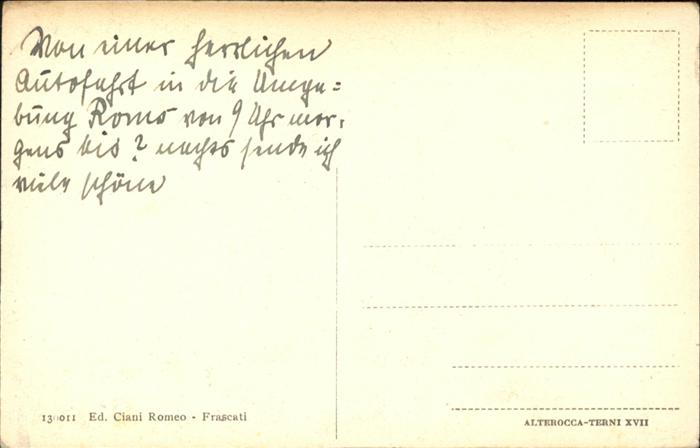 Von einer herrlichen
Autofahrt in die Umge=
bung Roms von 9 Uhr mor=
gens bis ? nachts sende ich
viele schöne
130011 Ed. Ciani Romeo - Frascati
ALTEROCCA-TERNI XVII